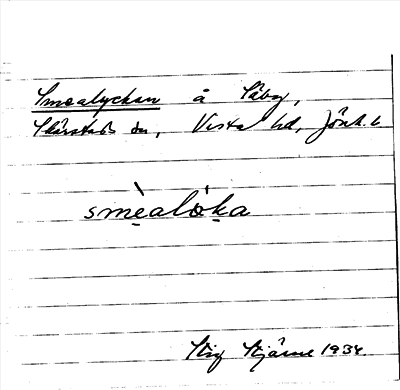 Smealyckan å Säby,
Skärstads sn, Vista hd, Jönk. l.
smèalò̀ka
Stig Stjärne 1934.